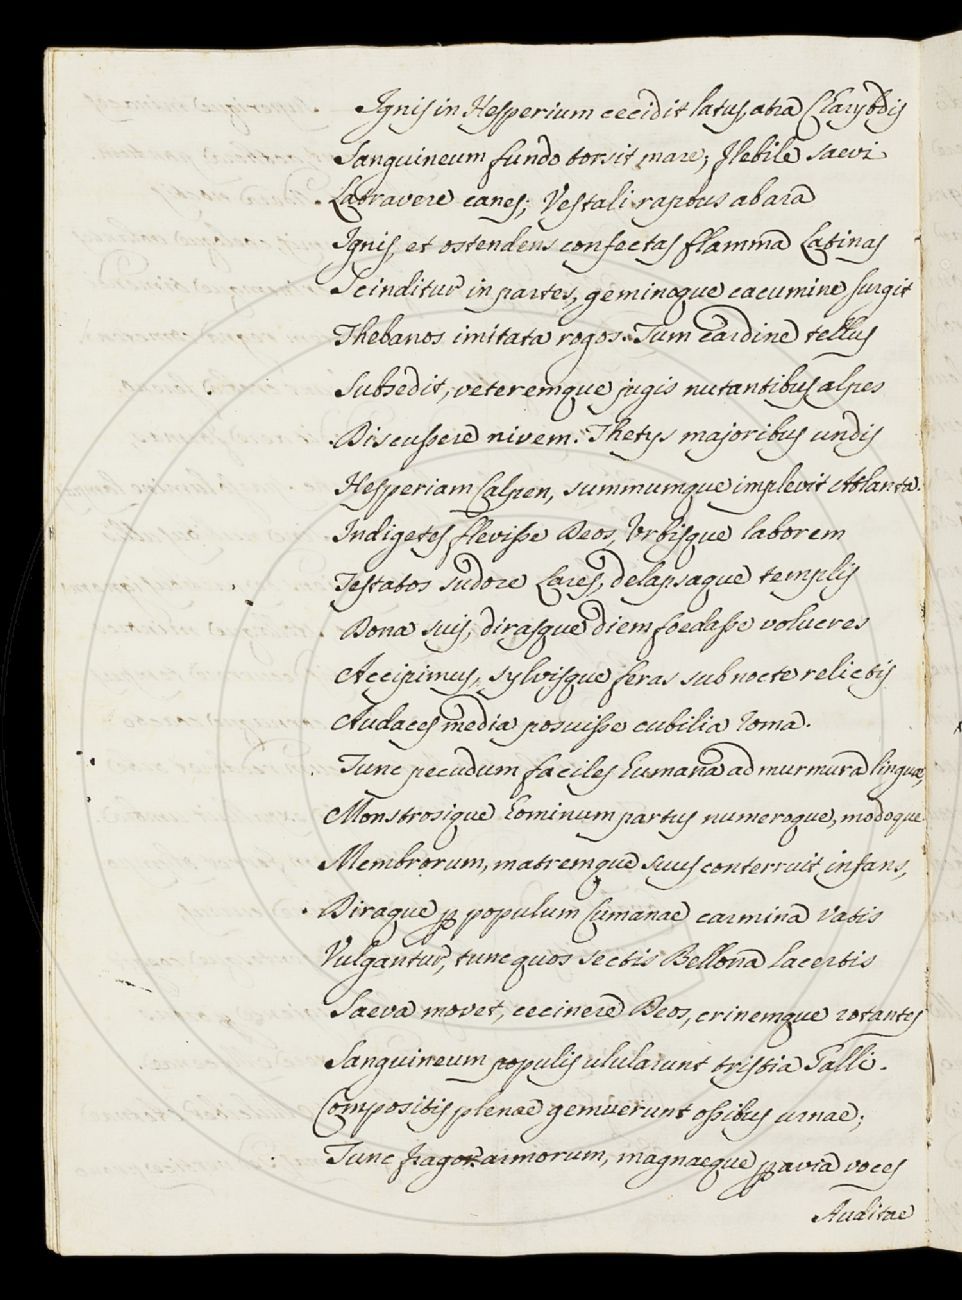 Ignis in Hesperium cecidit latus, atra Charybdis
Sanguineum fundo torsit mare; flebile saevi
Latravere canes; Vestali raptus ab ara
Ignis, et ostendens confectas flamma Latinas
Scinditur in partes, geminoque cacumine surgit
Thebanos imitata rogos. Tum cardine tellus
Subsedit, veteremque jugis nutantibus alpes
Discussere nivem. Thetys majoribus undis
Hesperiam Calpen, summumque implevit Atlanta.
Indigetes flevisse Deos, Urbisque laborem
Testatos sudore Lares, delapsaque templis
Dona suis, dirasque diem foedasse volucres
Accipimus, sylvisque feras sub nocte relictis
Audaces media posuisse cubilia Roma.
Tunc pecudum faciles humana ad murmura linguae,
Monstrosique hominum partus numeroque, modoque
Membrorum, matremque suus conterruit infans,
Diraque per populum Cumanae carmina Vatis
Vulgantur, tunc quos sectis Bellona lacertis
Saeva movet, cecinere Deos, crinemque rotantes
Sanguineum populis ulularunt tristia Galli.
Compositis plenae gemuerunt ossibus urnae;
Tunc fragor armorum, magnaeque per avia voces
Auditae